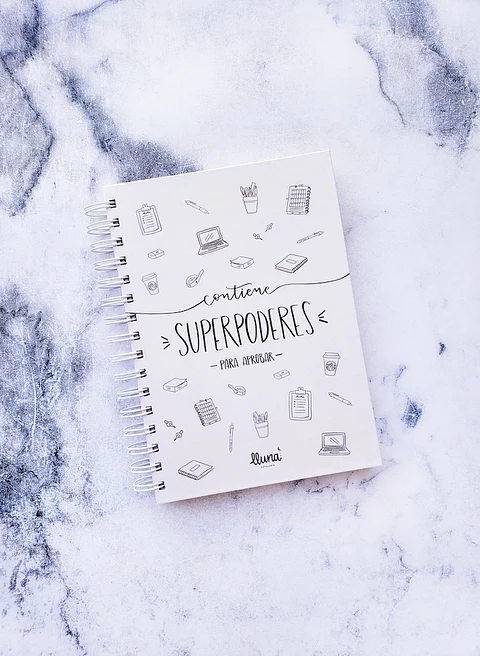 contiene
SUPERPODERES
- PARA APROBAR -
lluna